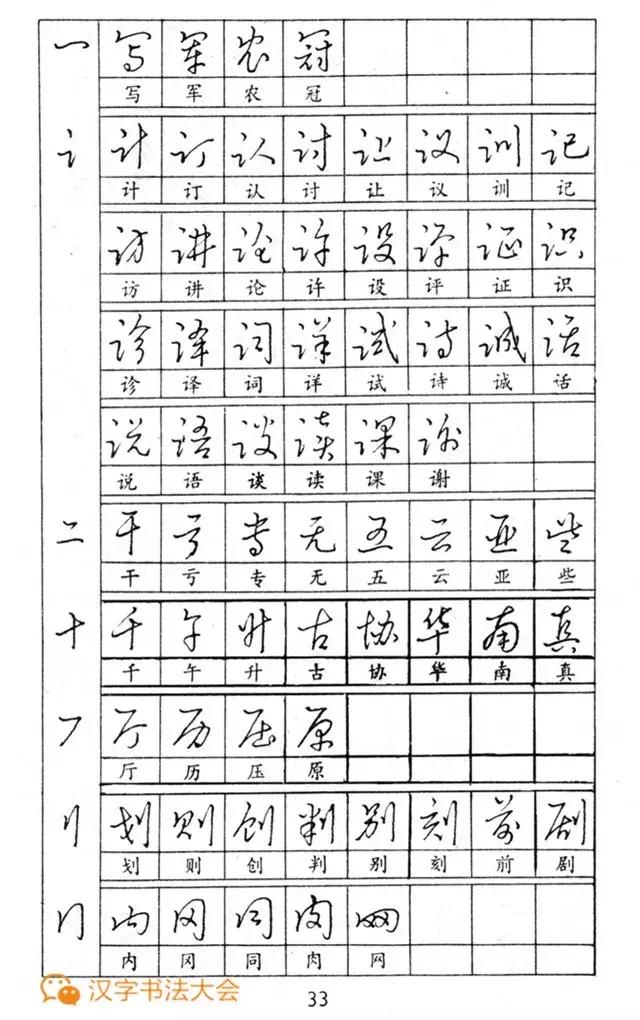 冖 写 军 农 冠
写 军 农 冠
讠 计 订 认 讨 让 议 训 记
计 订 认 讨 让 议 训 记
访 讲 论 许 设 评 证 识
访 讲 论 许 设 评 证 识
诊 译 词 详 试 诗 诚 话
诊 译 词 详 试 诗 诚 话
说 语 谈 读 课 谢
说 语 谈 读 课 谢
二 干 亏 专 无 五 云 亚 些
干 亏 专 无 五 云 亚 些
十 千 午 升 古 协 华 南 真
千 午 升 古 协 华 南 真
厂 厅 历 压 原
厅 历 压 原
刂 划 则 创 判 别 刻 前 剧
划 则 创 判 别 刻 前 剧
冂 内 冈 同 肉 网
内 冈 同 肉 网
汉字书法大会
33